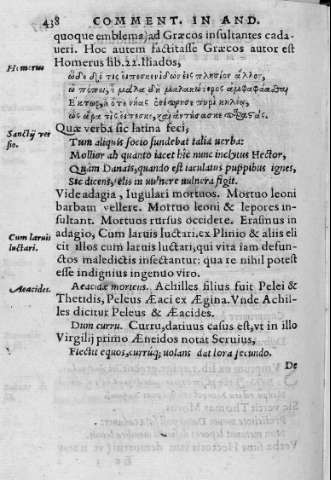 438 COMMENT. IN AND.
quoque emblema, ad Græcos insultantes cada-
ueri. Hoc autem factitasse Græcos autor est
Homerus
Homerus lib. 22. Iliados,
ὧδε δέ τις
Ἕκτωρ, ἢ ὅτε νῆας
ὣς ἄρα τις
Sanctij ver
sio.
Quæ verba sic latina feci,
Tum aliquis socio fundebat talia uerba:
Mollior ah quanto iacet hic nunc inclytus Hector,
Quàm Danais, quando est iaculatus puppibus ignes,
Sic dicens, telis in uulnere uulnera figit.
Vide adagia, Iugulari mortuos. Mortuo leoni
barbam vellere. Mortuo leoni & lepores in-
sultant. Mortuos rursus occidere. Erasmus in
Cum laruis
luctari.
adagio, Cum laruis luctari, ex Plinio & alijs eli
cit illos cum laruis luctari, qui vita iam defun-
ctos maledictis insectantur: qua re nihil potest
esse indignius ingenuo viro.
Aeacides.
Aeacidæ moriens. Achilles filius fuit Pelei &
Thetidis, Peleus Æaci ex Ægina. Vnde Achil-
les dicitur Peleus & Æacides.
Dum curru. Curru, datiuus casus est, vt in illo
Virgilij primo Æneidos notat Seruius,
Flectit equos, currúq; uolans dat lora secundo.
De